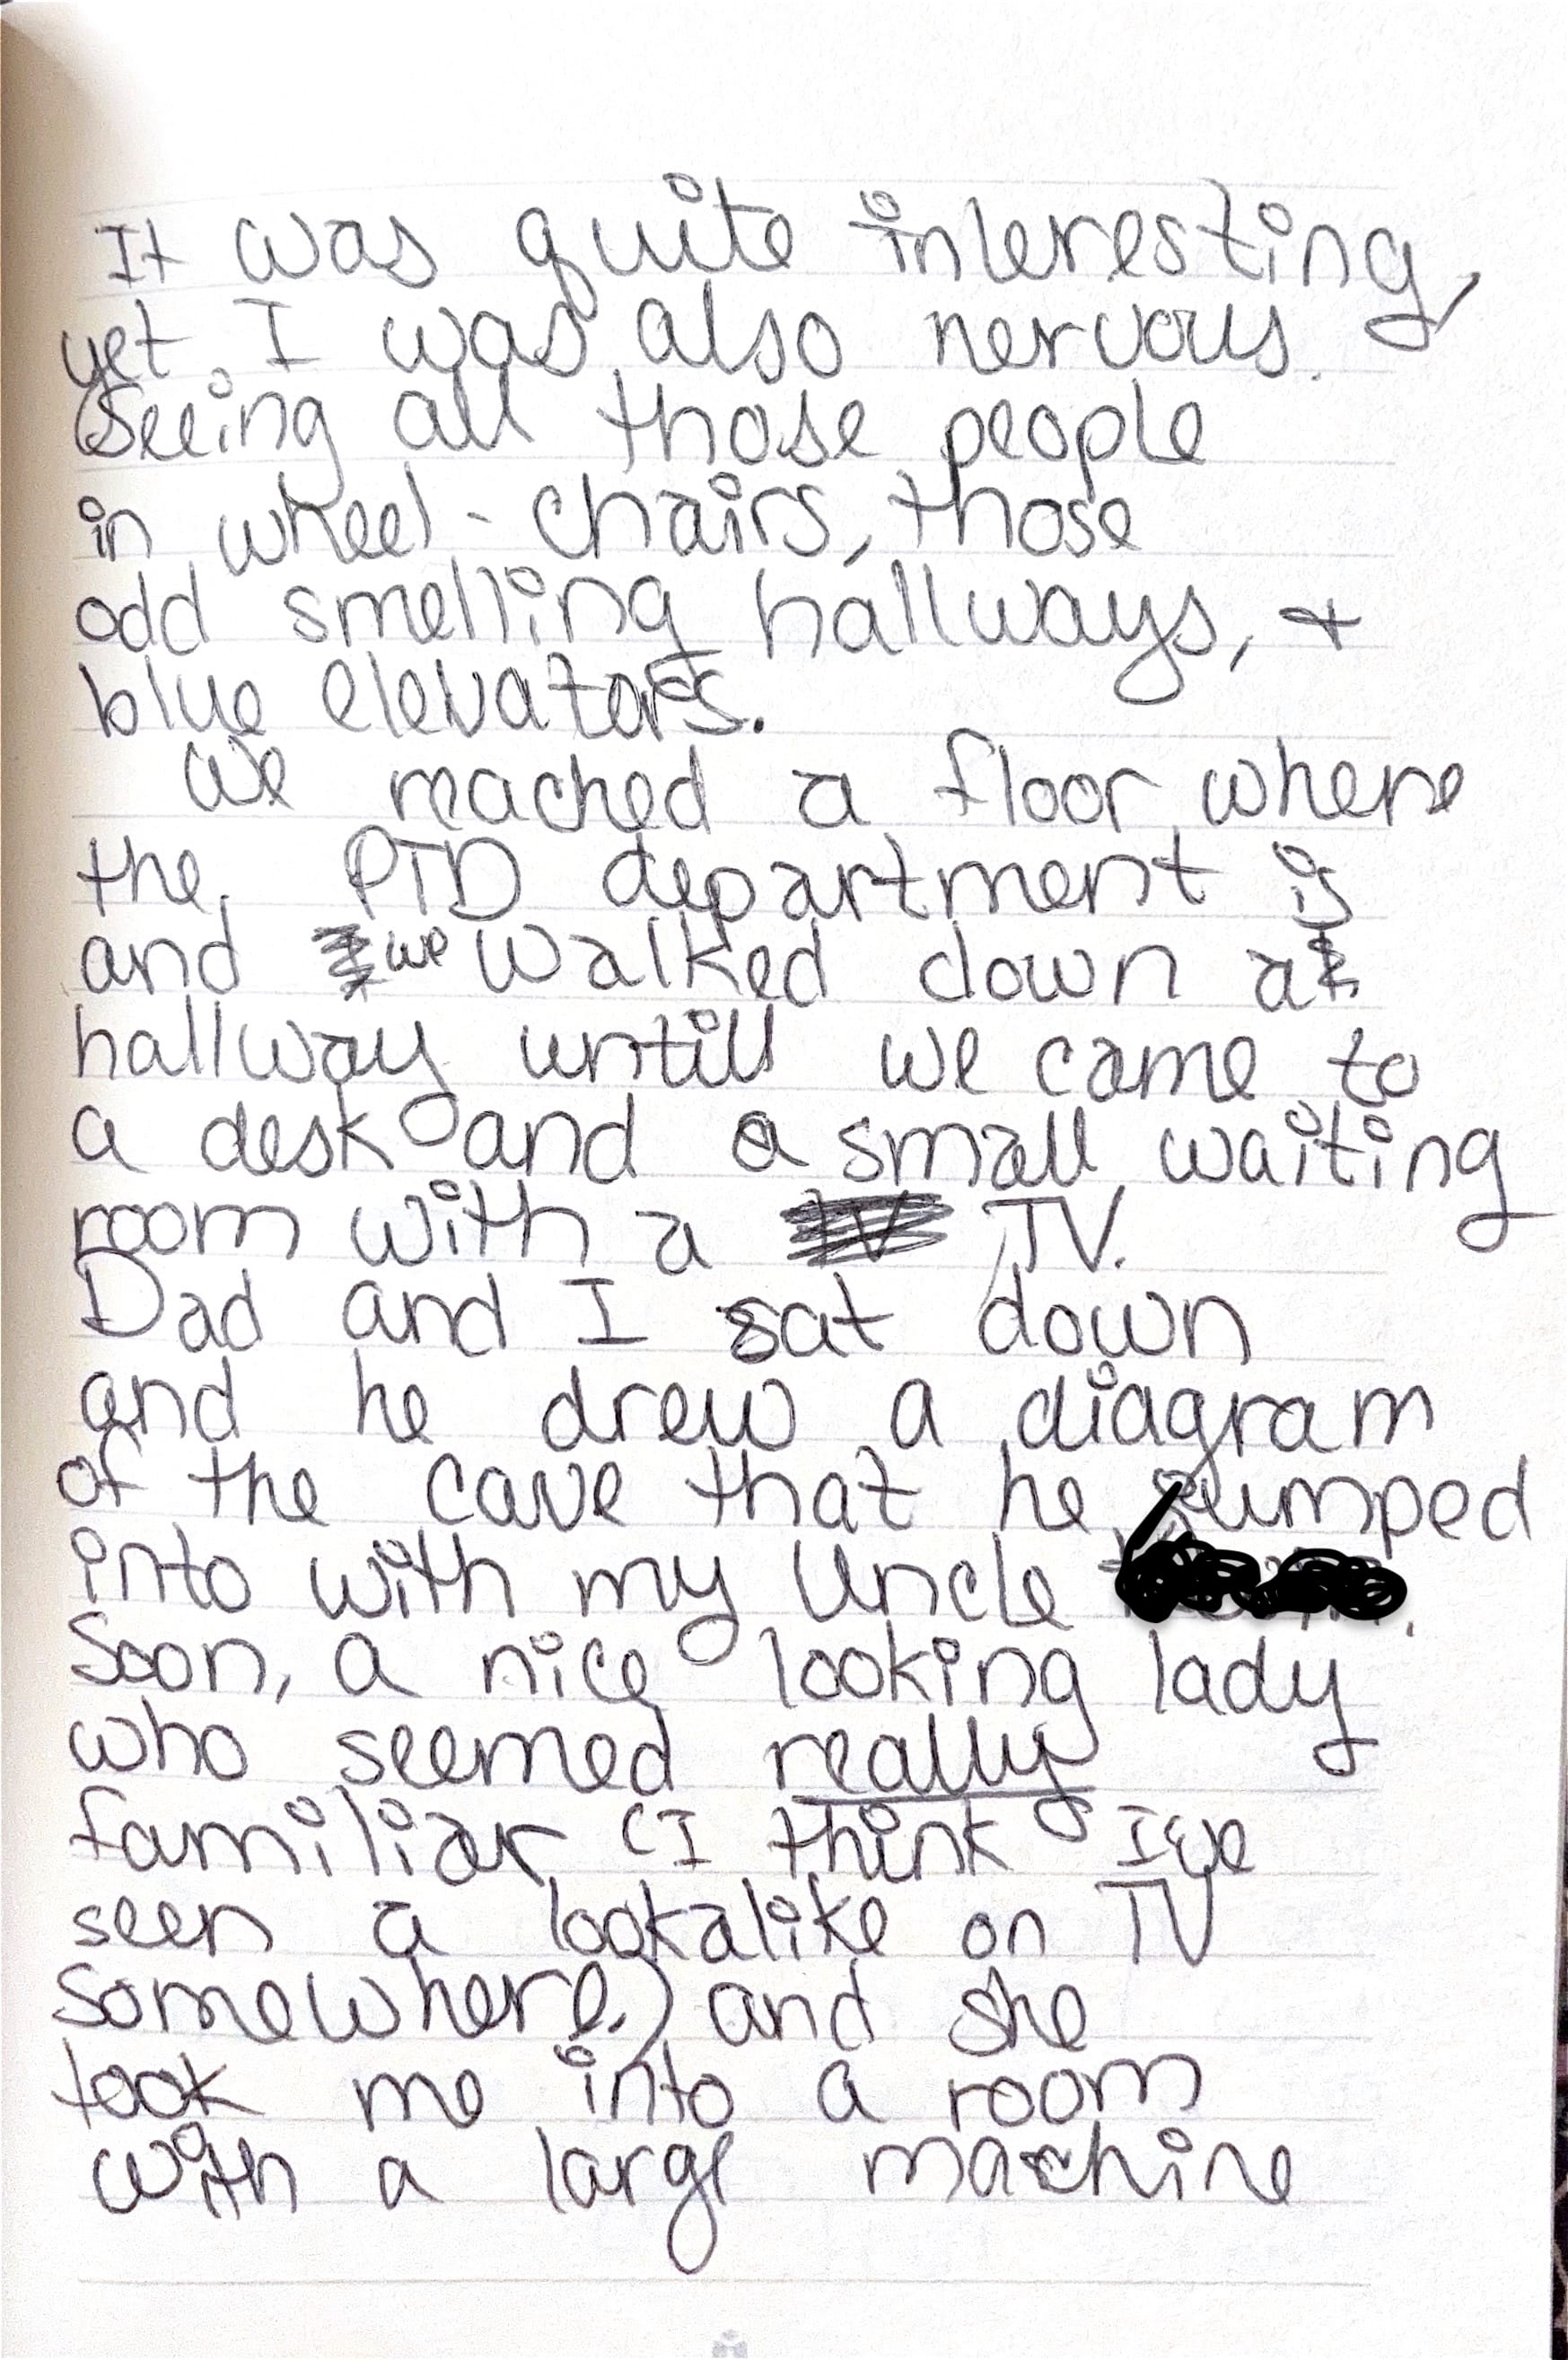 It was quite interesting,
yet I was also nervous.
Seeing all those people
in wheel-chairs, those
odd smelling hallways, &
blue elevators.
We reached a floor where
the PTD department is
and we walked down a
hallway untill we came to
a desk and a small waiting
room with a TV.
Dad and I sat down
and he drew a diagram
of the cave that he jumped
into with my Uncle
Soon, a nice looking lady
who seemed really
familiar (I think I've
seen a lookalike on TV
somewhere.) and she
took me into a room
with a large machine